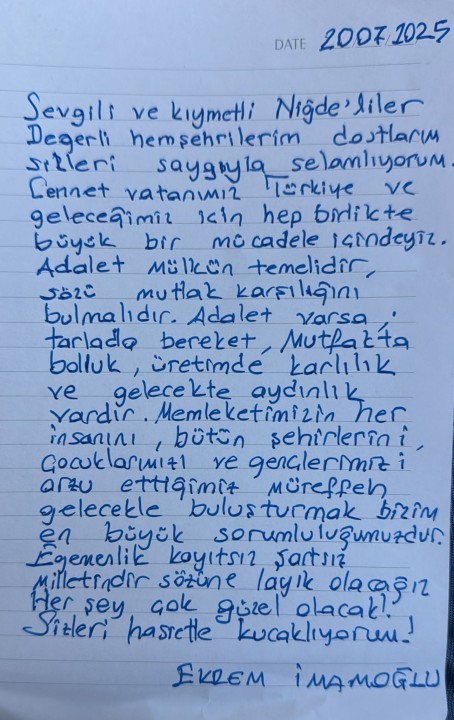 DATE 20.07.2025
Sevgili ve kıymetli Niğde'liler
Değerli hemşehrilerim dostlarım
sizleri saygıyla selamlıyorum.
Cennet vatanımız Türkiye ve
geleceğimiz için hep birlikte
büyük bir mücadele içindeyiz.
Adalet mülkün temelidir,
sözü mutlak karşılığını
bulmalıdır. Adalet varsa;
tarlada bereket, mutfakta
bolluk, üretimde karlılık
ve gelecekte aydınlık
vardır. Memleketimizin her
insanını, bütün şehirlerini,
çocuklarımızı ve gençlerimizi
arzu ettiğimiz müreffeh
gelecekle buluşturmak bizim
en büyük sorumluluğumuzdur.
Egemenlik kayıtsız şartsız
Milletindir sözüne layık olacağız
Her şey çok güzel olacak!
Sizleri hasretle kucaklıyorum!
EKREM İMAMOĞLU